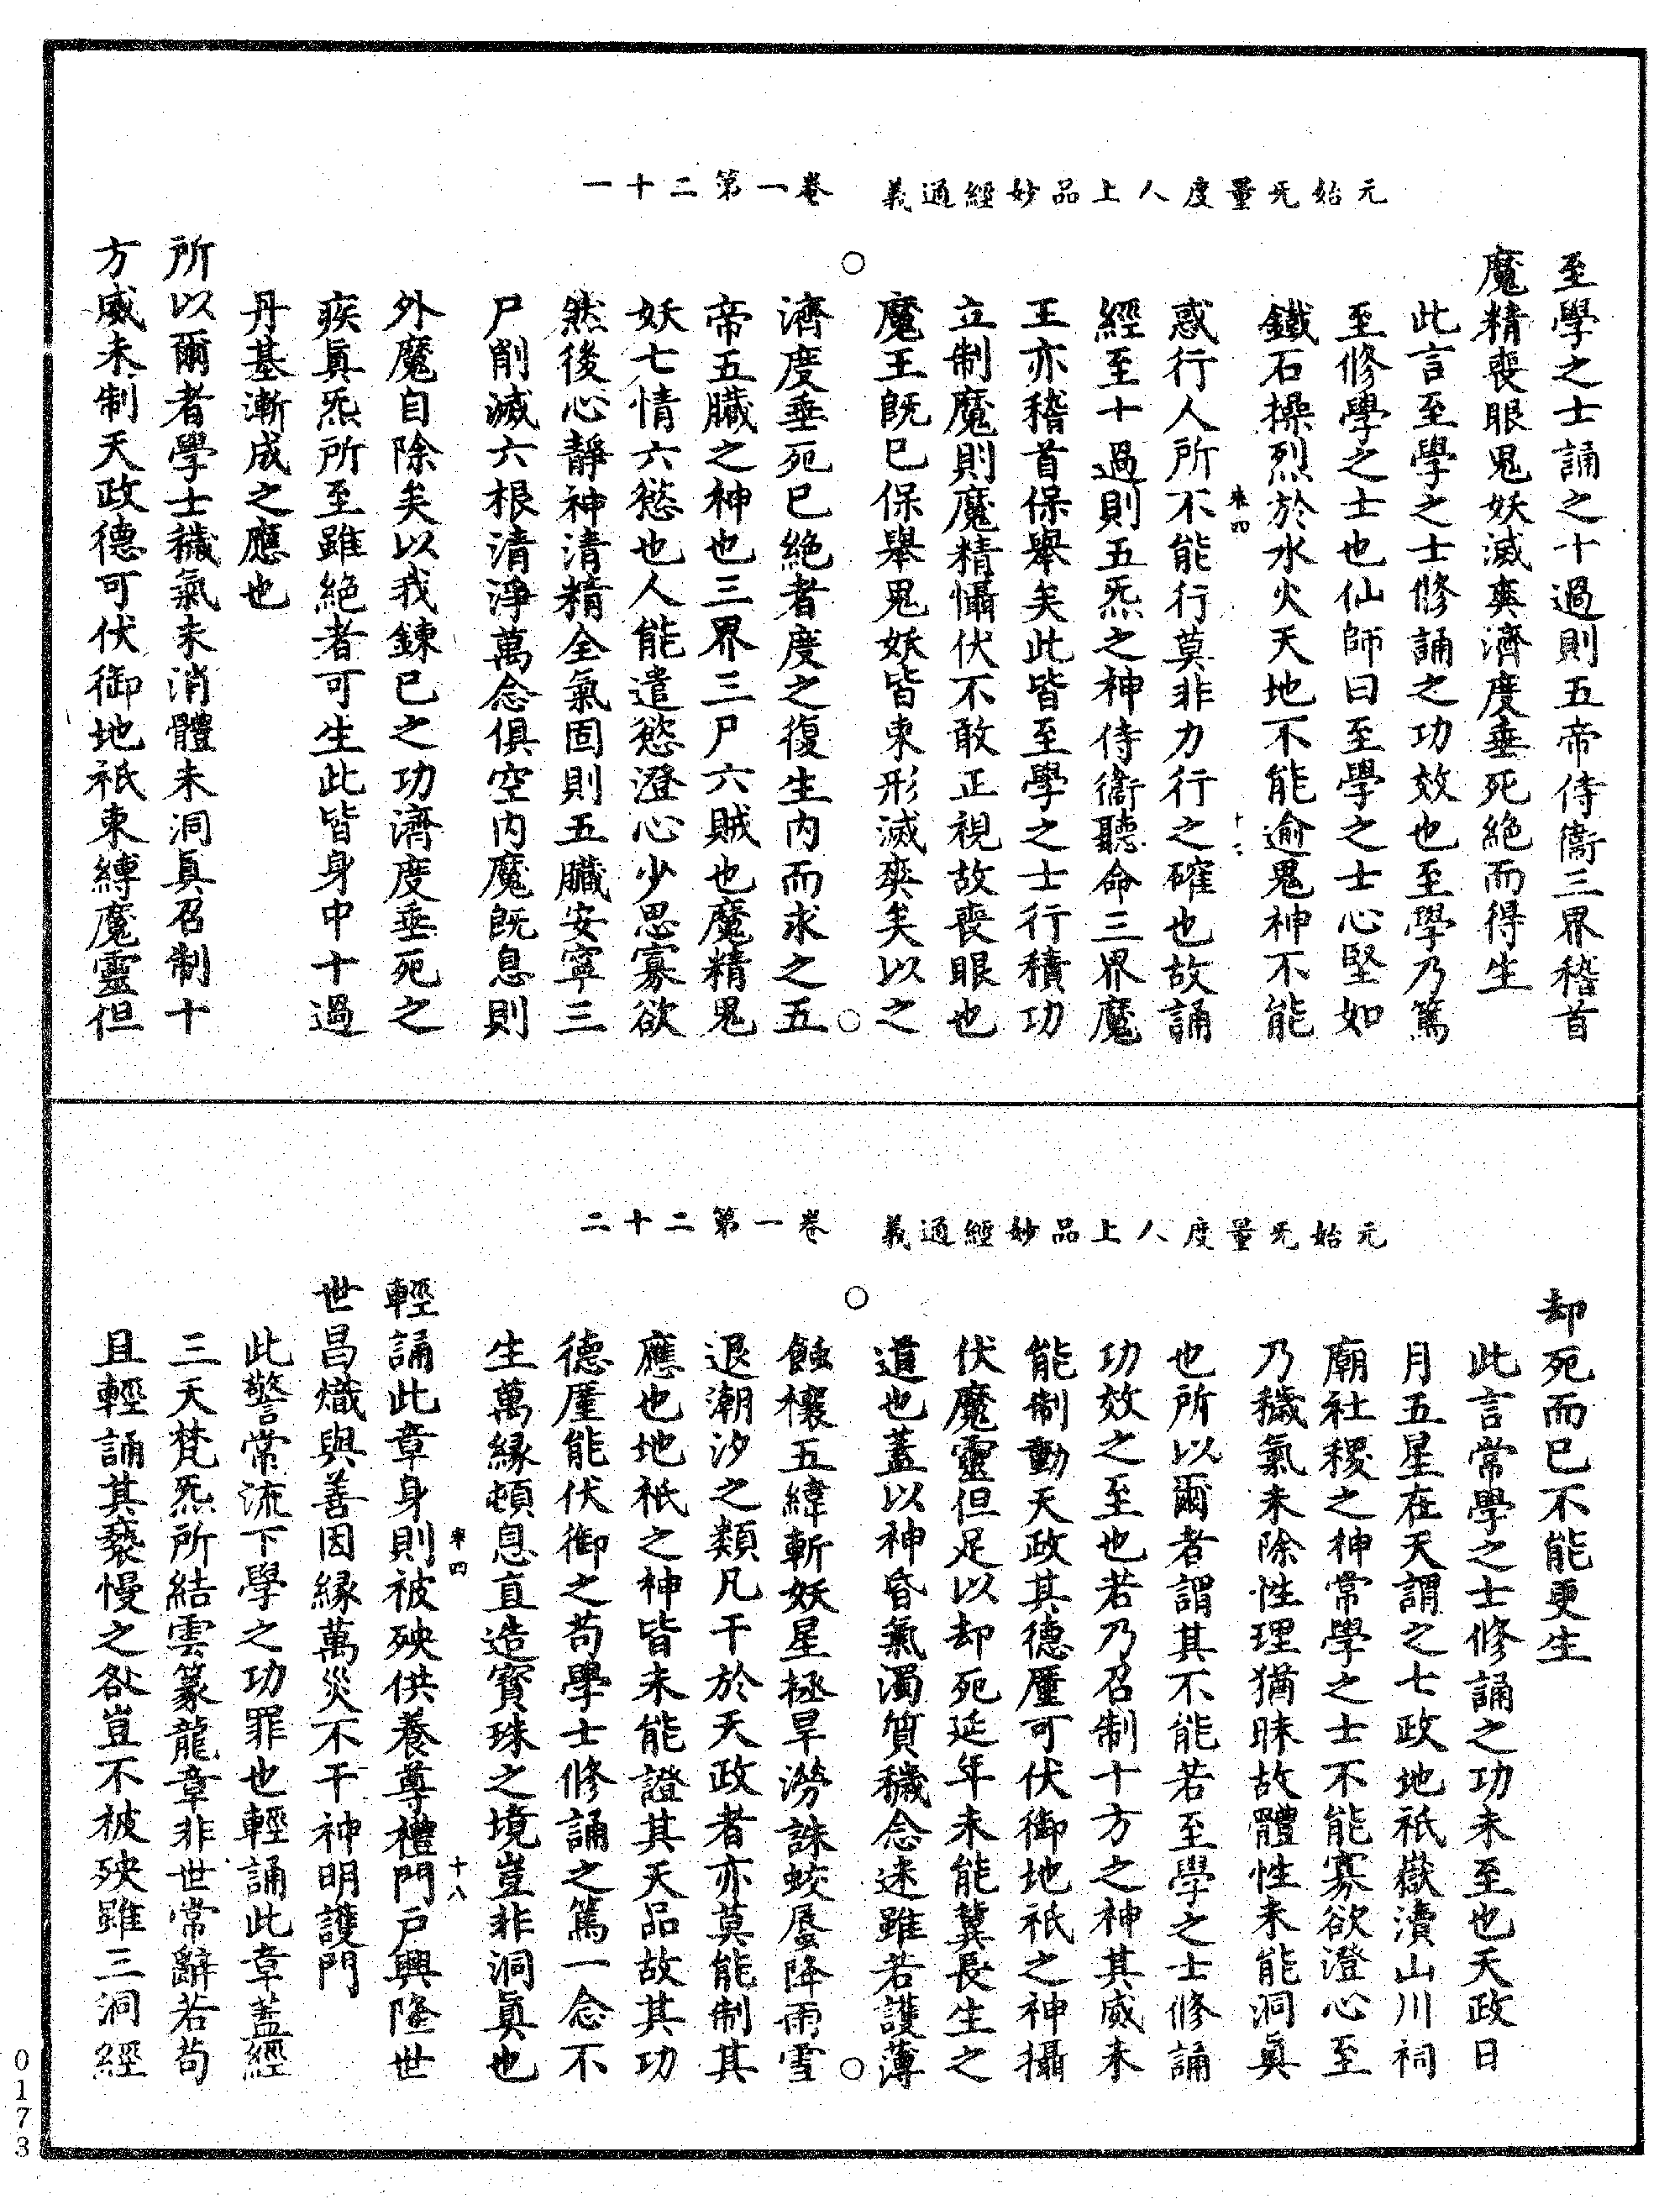 元始旡量度人上品妙經通義　卷一第二十一
至學之士誦之十過則五帝侍衞三界稽首
魔精喪眼鬼妖滅爽濟度垂死絶而得生
此言至學之士修誦之功效也至學乃篤
至修學之士也仙師曰至學之士心堅如
鐵石操烈於水火天地不能逾鬼神不能
惑行人所不能行莫非力行之確也故誦
經至十過則五炁之神侍衞聽命三界魔
王亦稽首保舉矣此皆至學之士行積功
立制魔則魔精懾伏不敢正視故喪眼也
魔王既巳保舉鬼妖皆束形滅爽矣以之
濟度垂死巳絶者度之復生内而求之五
帝五臟之神也三界三尸六賊也魔精鬼
妖七情六慾也人能遣慾澄心少思寡欲
然後心靜神清精全氣固則五臟安寧三
尸削滅六根清淨萬念俱空内魔既息則
外魔自除矣以我鍊已之功濟度垂死之
疾眞炁所至雖絶者可生此皆身中十過
丹基漸成之應也
所以爾者學士穢氣未消體未洞眞召制十
方威未制天政德可伏御地祇束縛魔靈但
元始旡量度人上品妙經通義　卷一第二十二
却死而已不能更生
此言常學之士修誦之功未至也天政日
月五星在天謂之七政地祇嶽瀆山川祠
廟社稷之神常學之士不能寡欲澄心至
乃穢氣未除性理猶昧故體性未能洞眞
也所以爾者謂其不能若至學之士修誦
功效之至也若乃召制十方之神其威未
能制動天政其德厪可伏御地祇之神攝
伏魔靈但足以却死延年未能冀長生之
道也蓋以神昏氣濁質穢念迷雖若護薄
蝕禳五緯斬妖星拯旱澇誅蛟蜃降雨雪
退潮汐之類凡干於天政者亦莫能制其
應也地祇之神皆未能證其天品故其功
德厪能伏御之苟學士修誦之篤一念不
生萬緣頓息直造寳珠之境豈非洞眞也
輕誦此章身則被殃供養尊禮門戸興隆世
世昌熾與善因緣萬災不干神明護門
此警常流下學之功罪也輕誦此章蓋經
三天梵炁所結雲篆龍章非世常辭若苟
且輕誦其䙝慢之咎豈不被殃雖三洞經
來四
來四
十八
0173